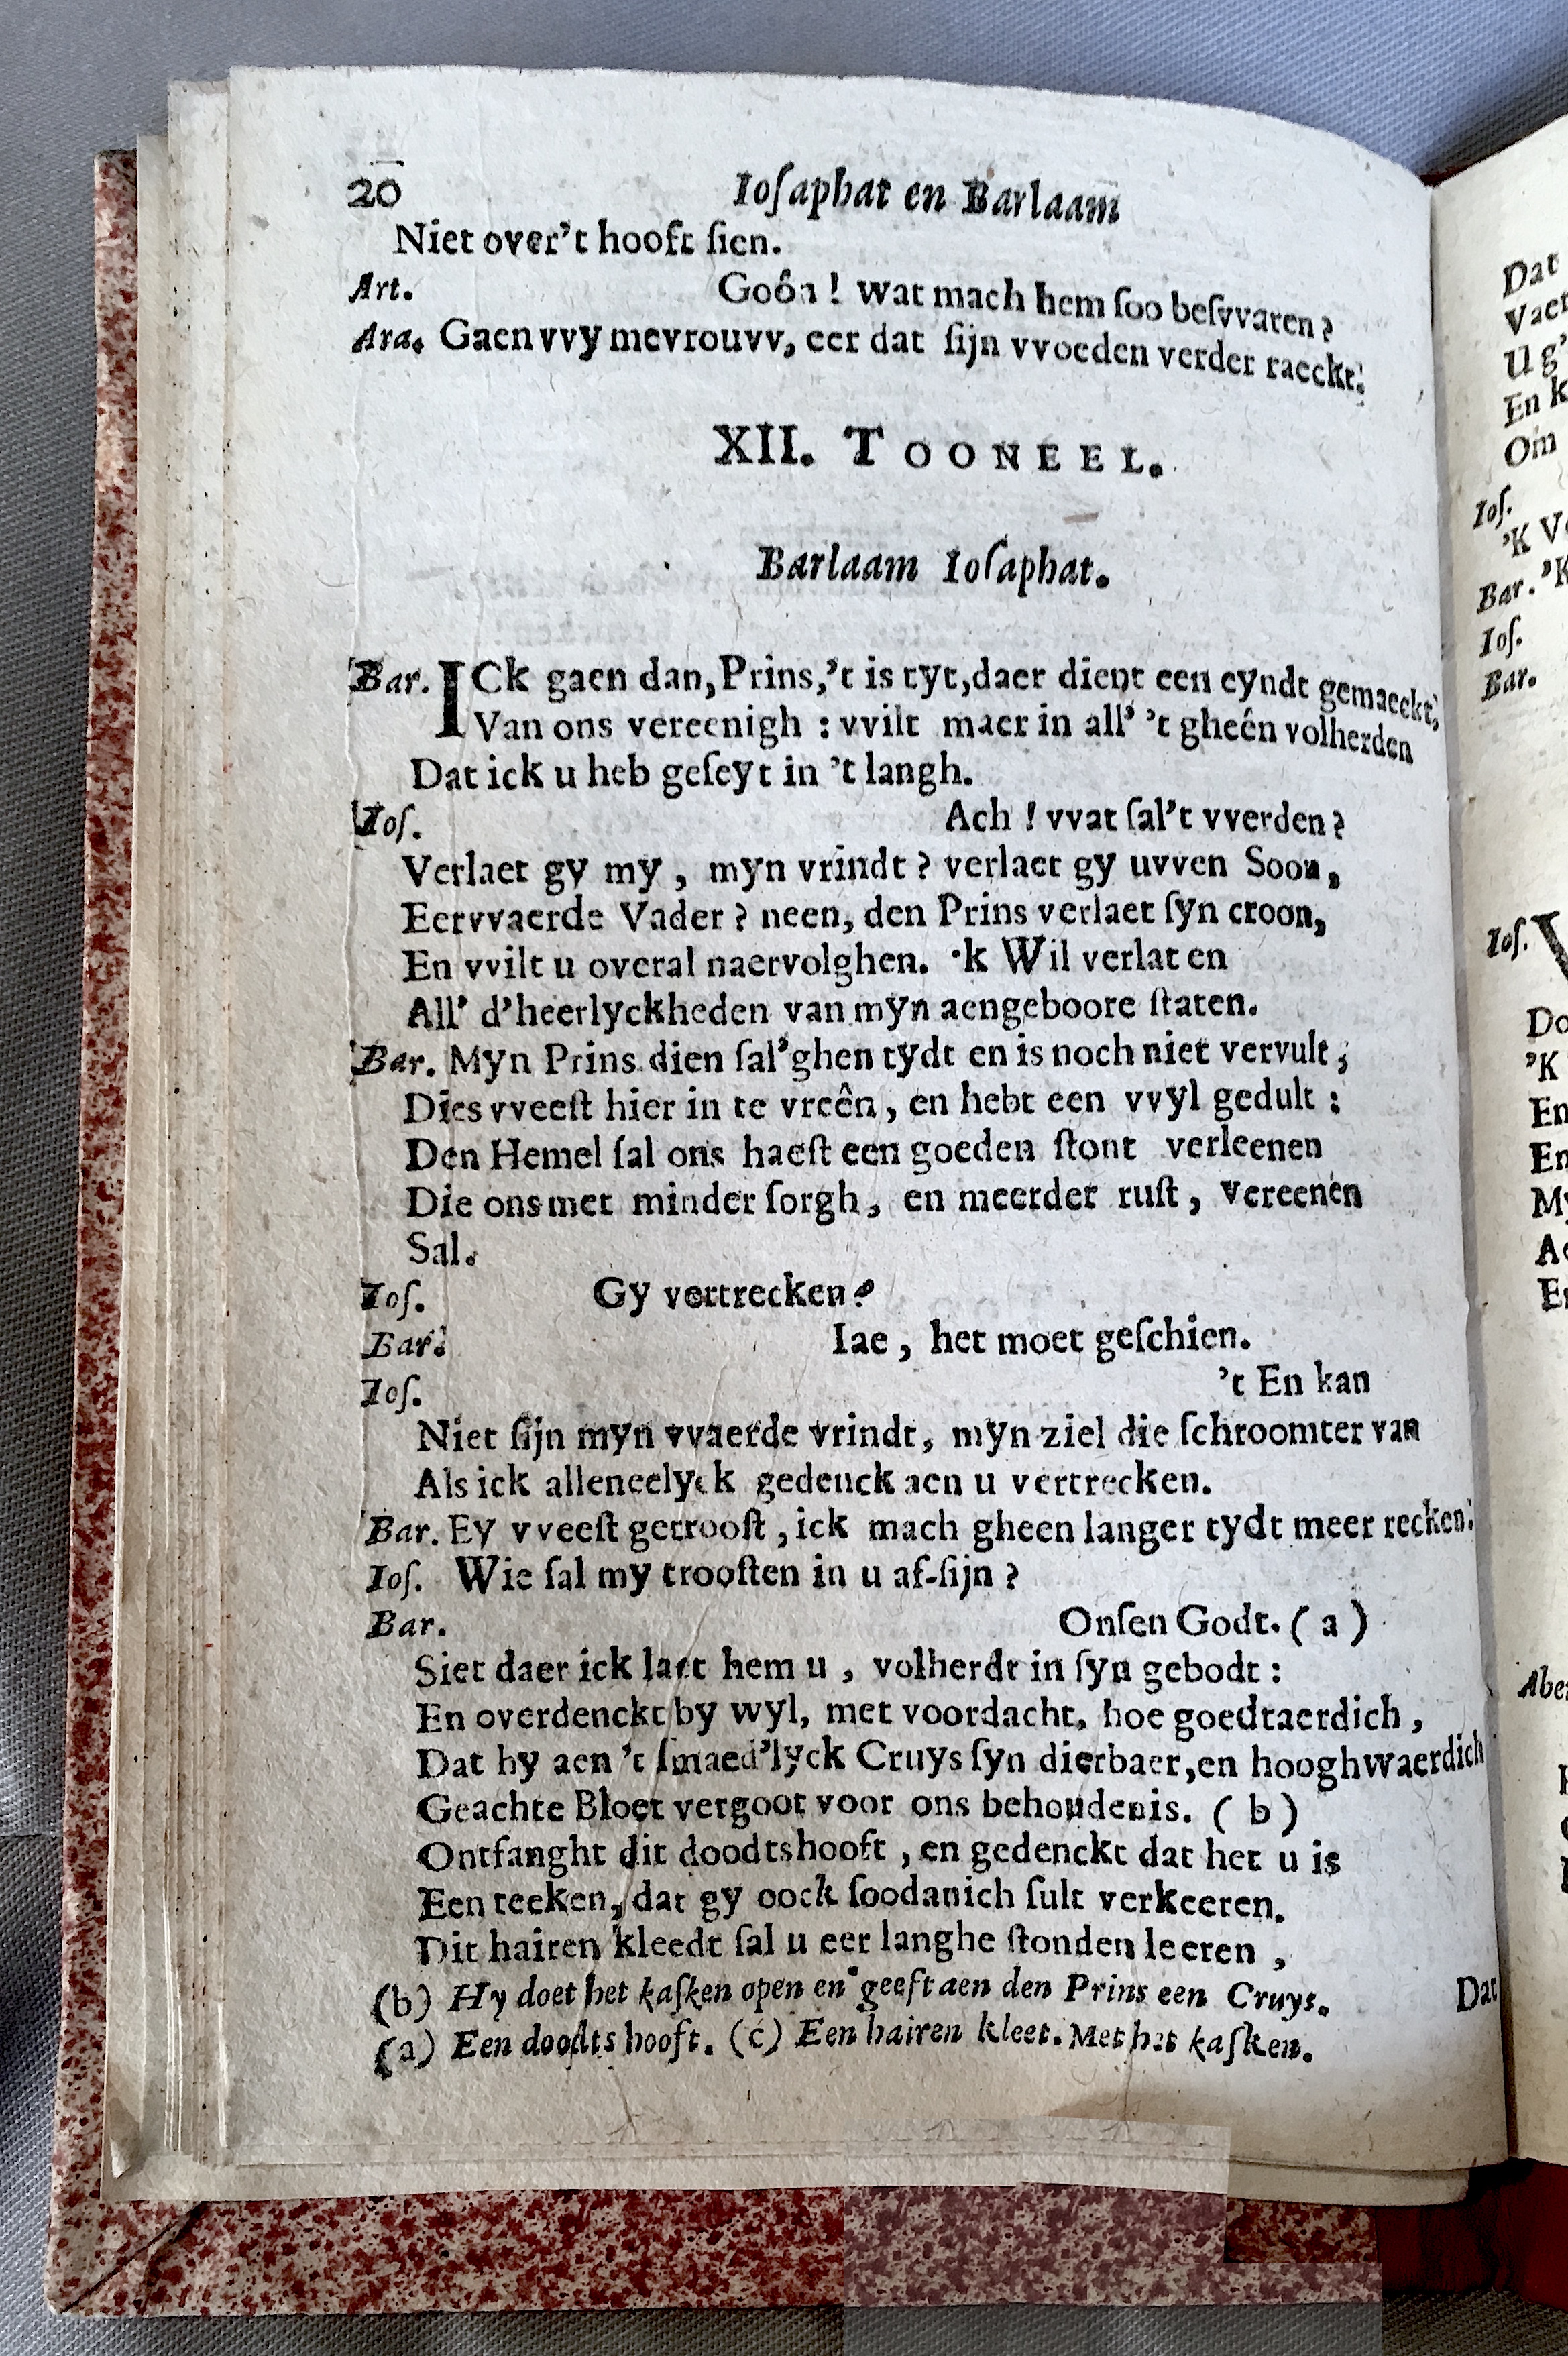 20 Ioſaphat en Barlaam
Niet over't hooft ſien.
Art. Goôn ! wat mach hem ſoo beſvvaren?
Ara. Gaen vvy mevrouvv, eer dat ſijn vvoeden verder raeckt.
XII. TOONEEL.
Barlaam Ioſaphat.
Bar. ICk gaen dan, Prins,'t is tyt, daer dient een eyndt gemaeckt,
Van ons vereenigh : vvilt maer in all' 't gheên volherden
Dat ick u heb geſeyt in 't langh.
Ioſ. Ach ! vvat ſal't vverden?
Verlaet gy my , myn vrindt ? verlaet gy uvven Soon,
Eervvaerde Vader ? neen, den Prins verlaet ſyn croon,
En vvilt u overal naervolghen. 'k Wil verlaten
All' d'heerlyckheden van myn aengeboore ſtaten.
Bar. Myn Prins dien ſal'ghen tydt en is noch niet vervult ;
Dies vveeſt hier in te vreên, en hebt een vvyl gedult :
Den Hemel ſal ons haeſt een goeden ſtont verleenen
Die ons met minder ſorgh, en meerder ruſt, vereenen
Sal.
Ioſ. Gy vertrecken?
Bar. Iae, het moet geſchien.
Ioſ. 't En kan
Niet ſijn myn vvaerde vrindt, myn ziel die ſchroomter van
Als ick alleneelyck gedenck aen u vertrecken.
Bar. Ey vveeſt getrooſt, ick mach gheen langer tydt meer recken.
Ioſ. Wie ſal my trooſten in u af-ſijn ?
Bar. Onſen Godt. ( a )
Siet daer ick laet hem u , volherdt in ſyn gebodt :
En overdenckt by wyl, met voordacht, hoe goedtaerdich ,
Dat hy aen 't ſmaed'lyck Cruys ſyn dierbaer, en hooghwaerdich
Geachte Bloet vergoot voor ons behoudenis. ( b )
Ontfanght dit doodtshooft , en gedenckt dat het u is
Een teeken, dat gy oock ſoodanich ſult verkeeren.
Dit hairen kleedt ſal u eer langhe ſtonden leeren ,
(b) Hy doet het kaſken open en geeft aen den Prins een Cruys. Dat
(a) Een doodts hooft. (c) Een hairen kleet. Met het kaſken.
Dat
U g'
En k
Om
Ioſ.
'K V
Bar. 'K
Ioſ.
Bar.
Ioſ. V
Do
'K
En
En
My
Ac